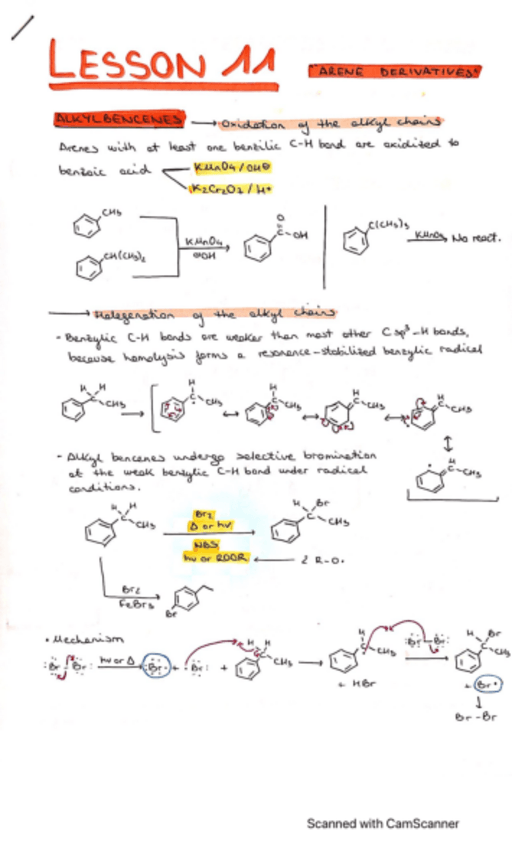 LESSON 11
"ARENE DERIVATIVES"
ALKYLBENCENES → Oxidation of the alkyl chains
Arenes with at least one benzilic C-H bond are oxidized to
benzoic acid
KMnO4 / OH⊖
K2Cr2O7 / H+
CH3
CH(CH3)2
KMnO4
⊖OH
O
C-OH
C(CH3)3
KMnO4
No react.
→ Halogenation of the alkyl chains
- Benzylic C-H bonds are weaker than most other C sp3-H bonds,
because homolysis forms a resonance-stabilized benzylic radical
H H
C CH3
H
C-CH3
H
C-CH3
H
C-CH3
H
C-CH3
H
C-CH3
- Alkyl bencenes undergo selective bromination
at the weak benzylic C-H bond under radical
conditions.
H H
C CH3
Br2
Δ or hν
NBS
hν or ROOR
2 R-O·
H Br
C CH3
Br2
FeBr3
Br
• Mechanism
Br-Br
hν or Δ
Br· + Br· +
H H
C CH3
H
C-CH3
+ HBr
Br-Br
H Br
C CH3
+ Br·
↓
Br-Br
Scanned with CamScanner